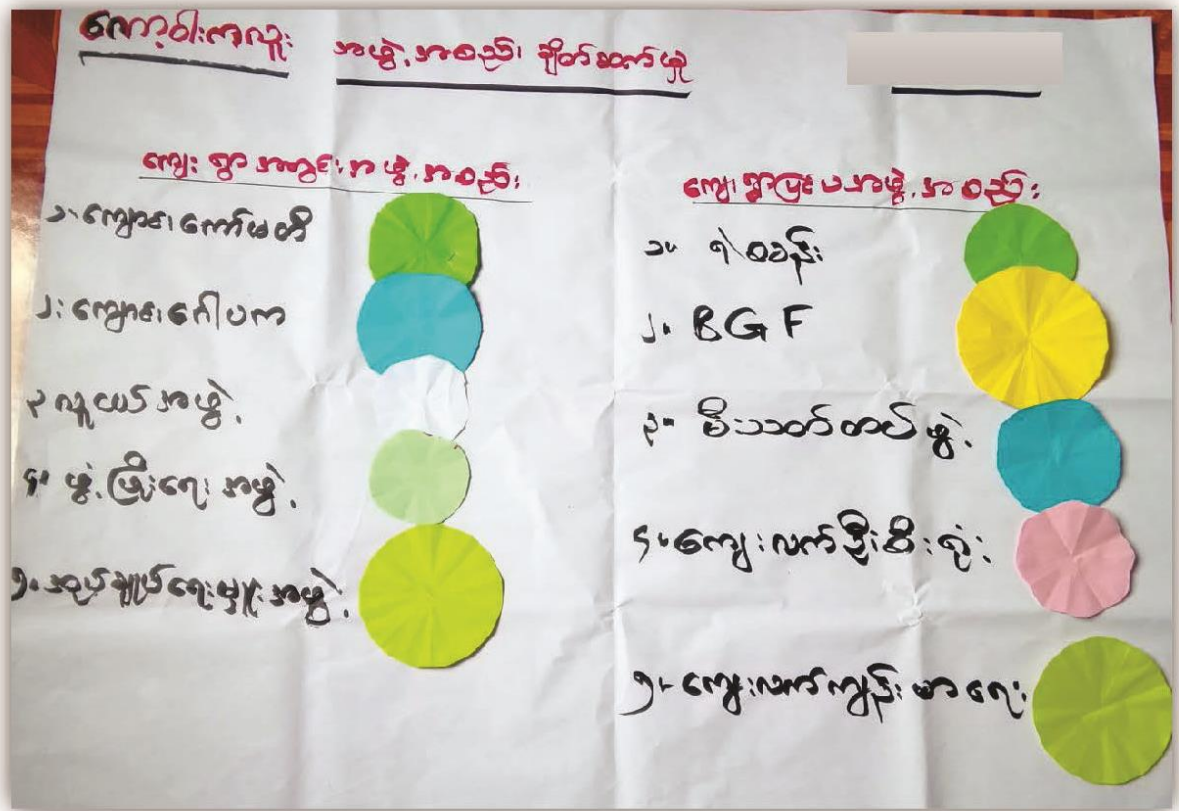 ကော့ဝါးကလူး အဖွဲ့အစည်း ချိတ်ဆက်မှု
ကျေးရွာအတွင်းအဖွဲ့အစည်း
၁။ ကျောင်းကော်မတီ
၂။ ကျောင်းဂေါပက
၃ လူငယ်အဖွဲ့
၄။ ဖွံ့ဖြိုးရေးအဖွဲ့
၅။ အုပ်ချုပ်ရေးမှူးအဖွဲ့
ကျေးရွာပြင်ပအဖွဲ့အစည်း
၁။ ရဲစခန်း
၂။ BGF
၃။ မီးသတ်တပ်ဖွဲ့
၄။ ကျေးလက်ဦးစီးရုံး
၅။ ကျေးလက်ကျန်းမာရေး